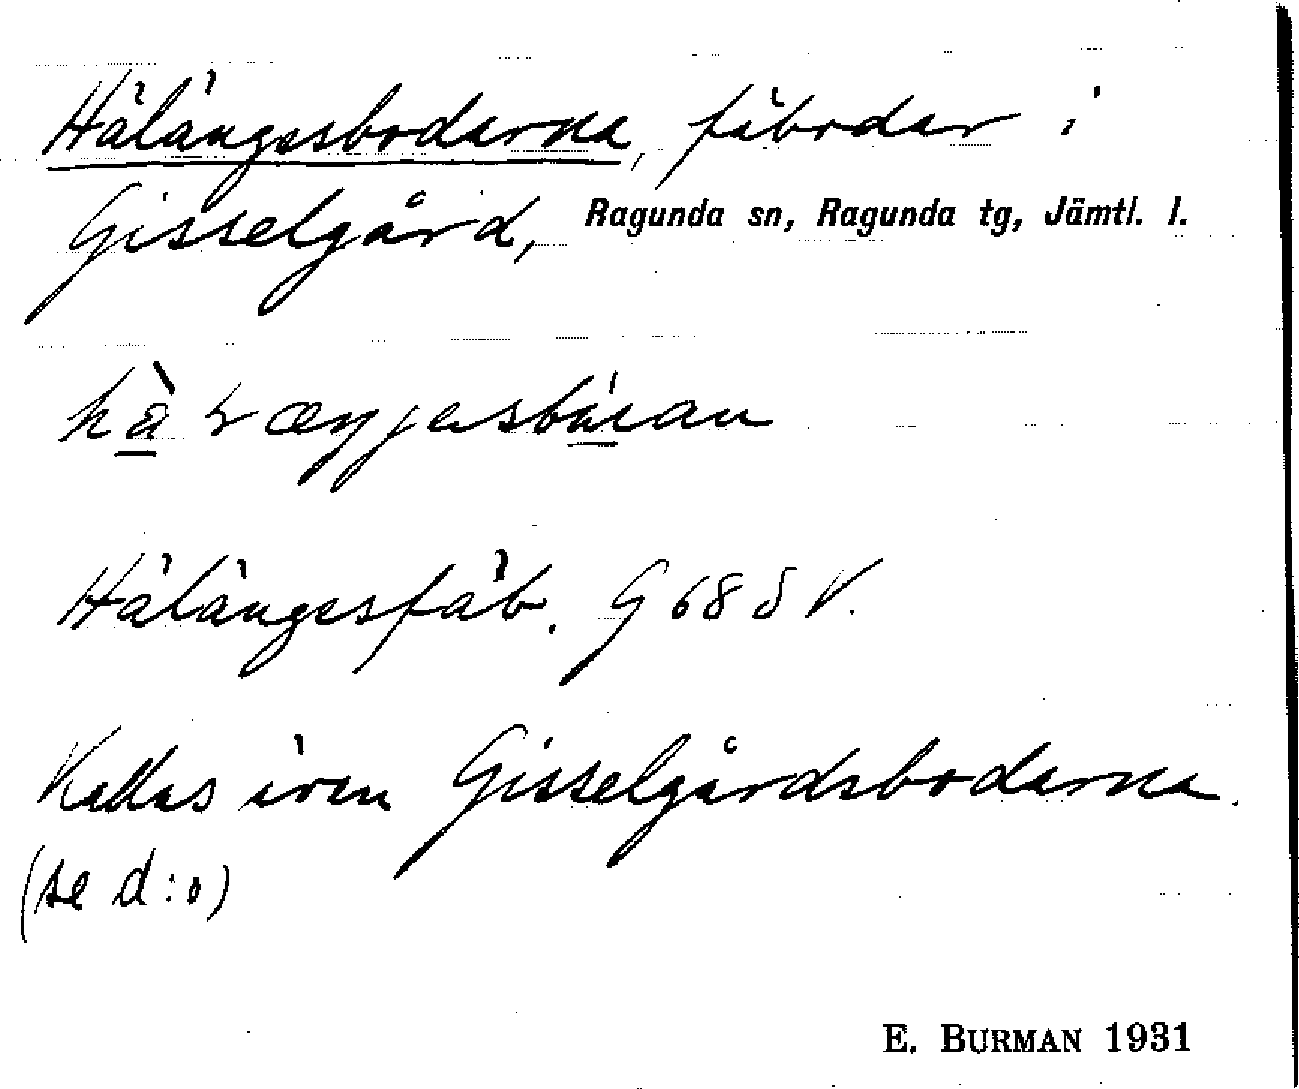 Hälängesbodarna, fäbodar i
Gisselgård, Ragunda sn, Ragunda tg, Jämtl. l.
Hälängesfäb. G 68 S V.
Kallas även Gisselgårdsbodarna.
(se d:o)
E. BURMAN 1931